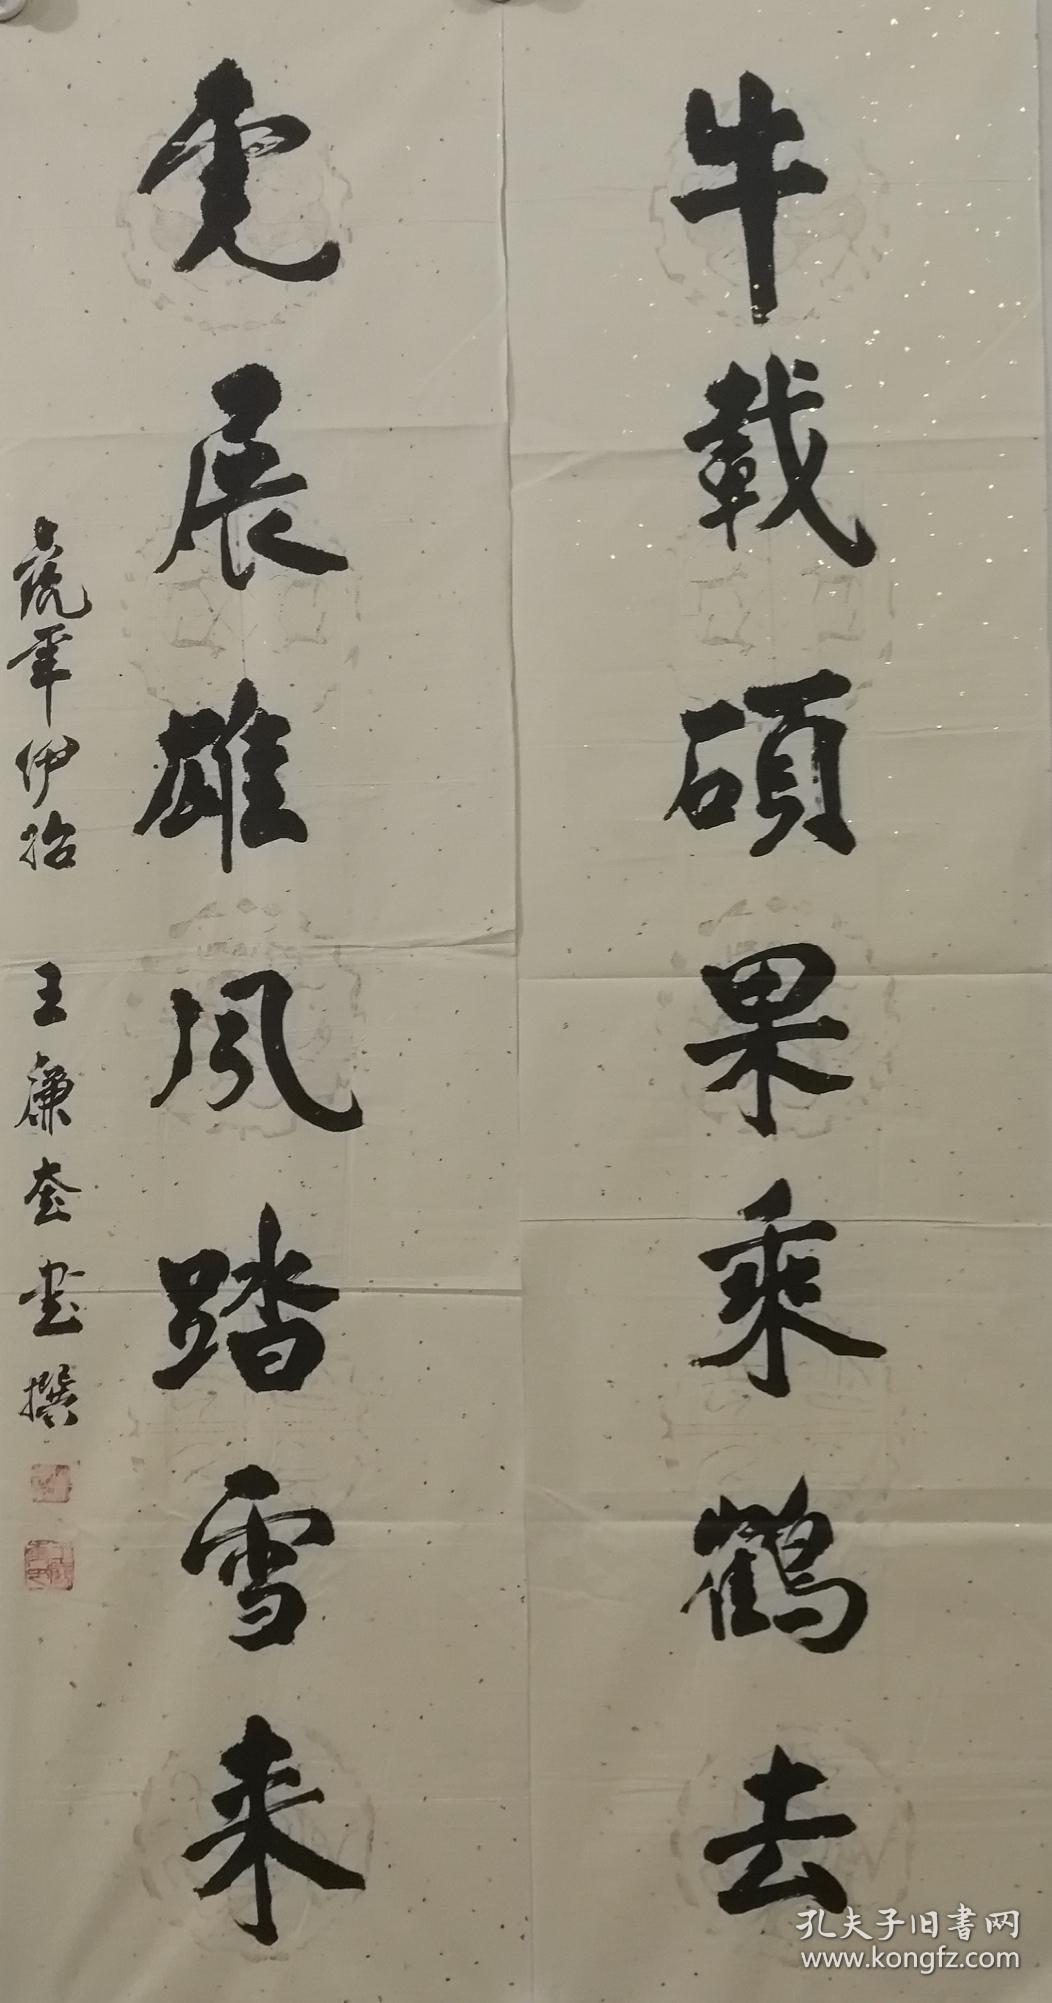 牛載碩果乘鶴去
虎展雄风踏雪来
虎年伊始 王廉奎书撰
孔夫子旧書网
www.kongfz.com